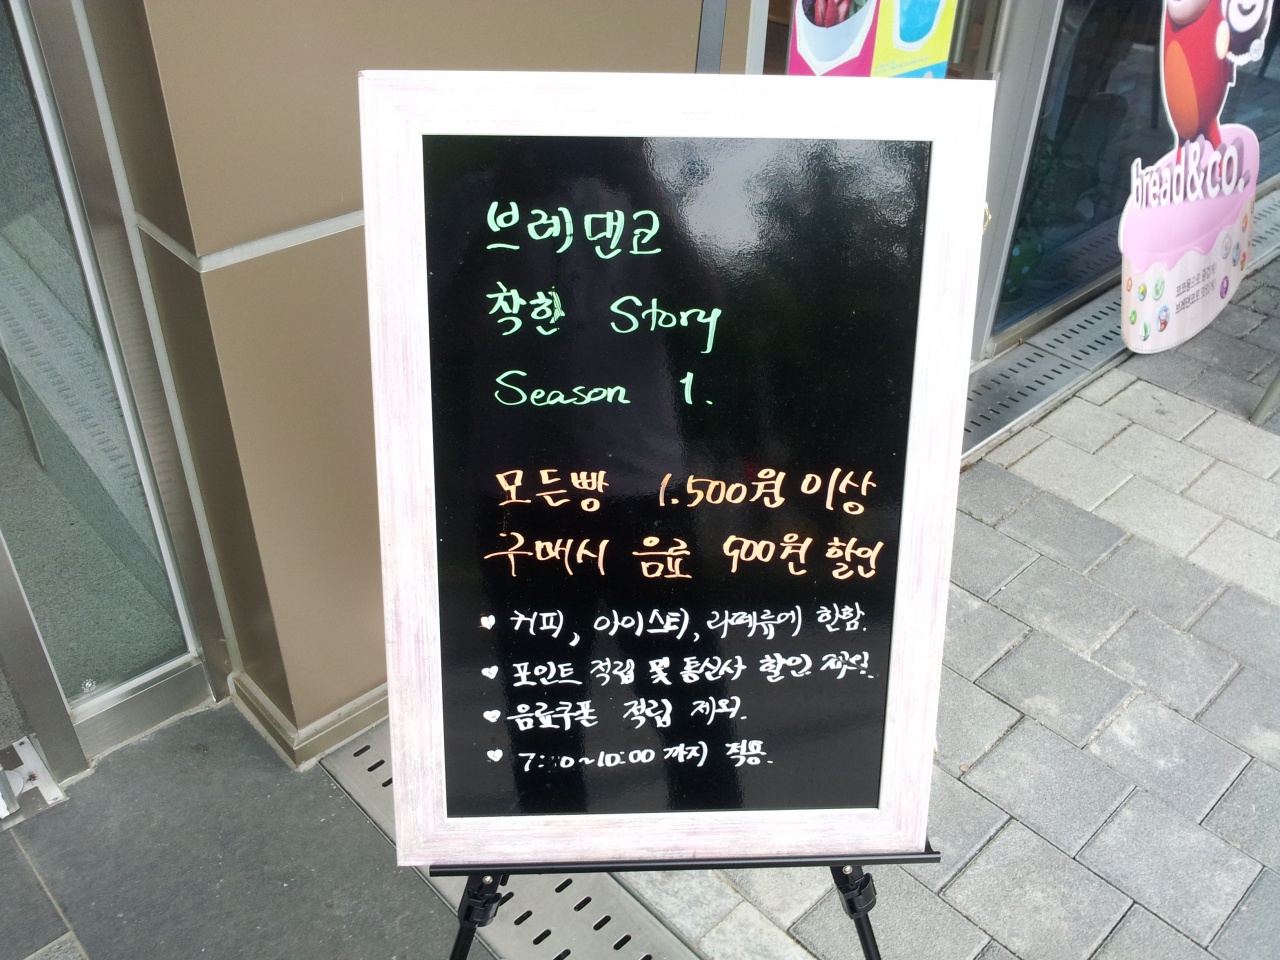 브레댄코
착한 Story
Season 1.
모든빵 1.500원 이상
구매시 음료 900원 할인
커피, 아이스티, 라떼류에 한함.
포인트 적립 및 통신사 할인 제외.
음료쿠폰 적립 제외.
~10:00 까지 적용.
bread&co.